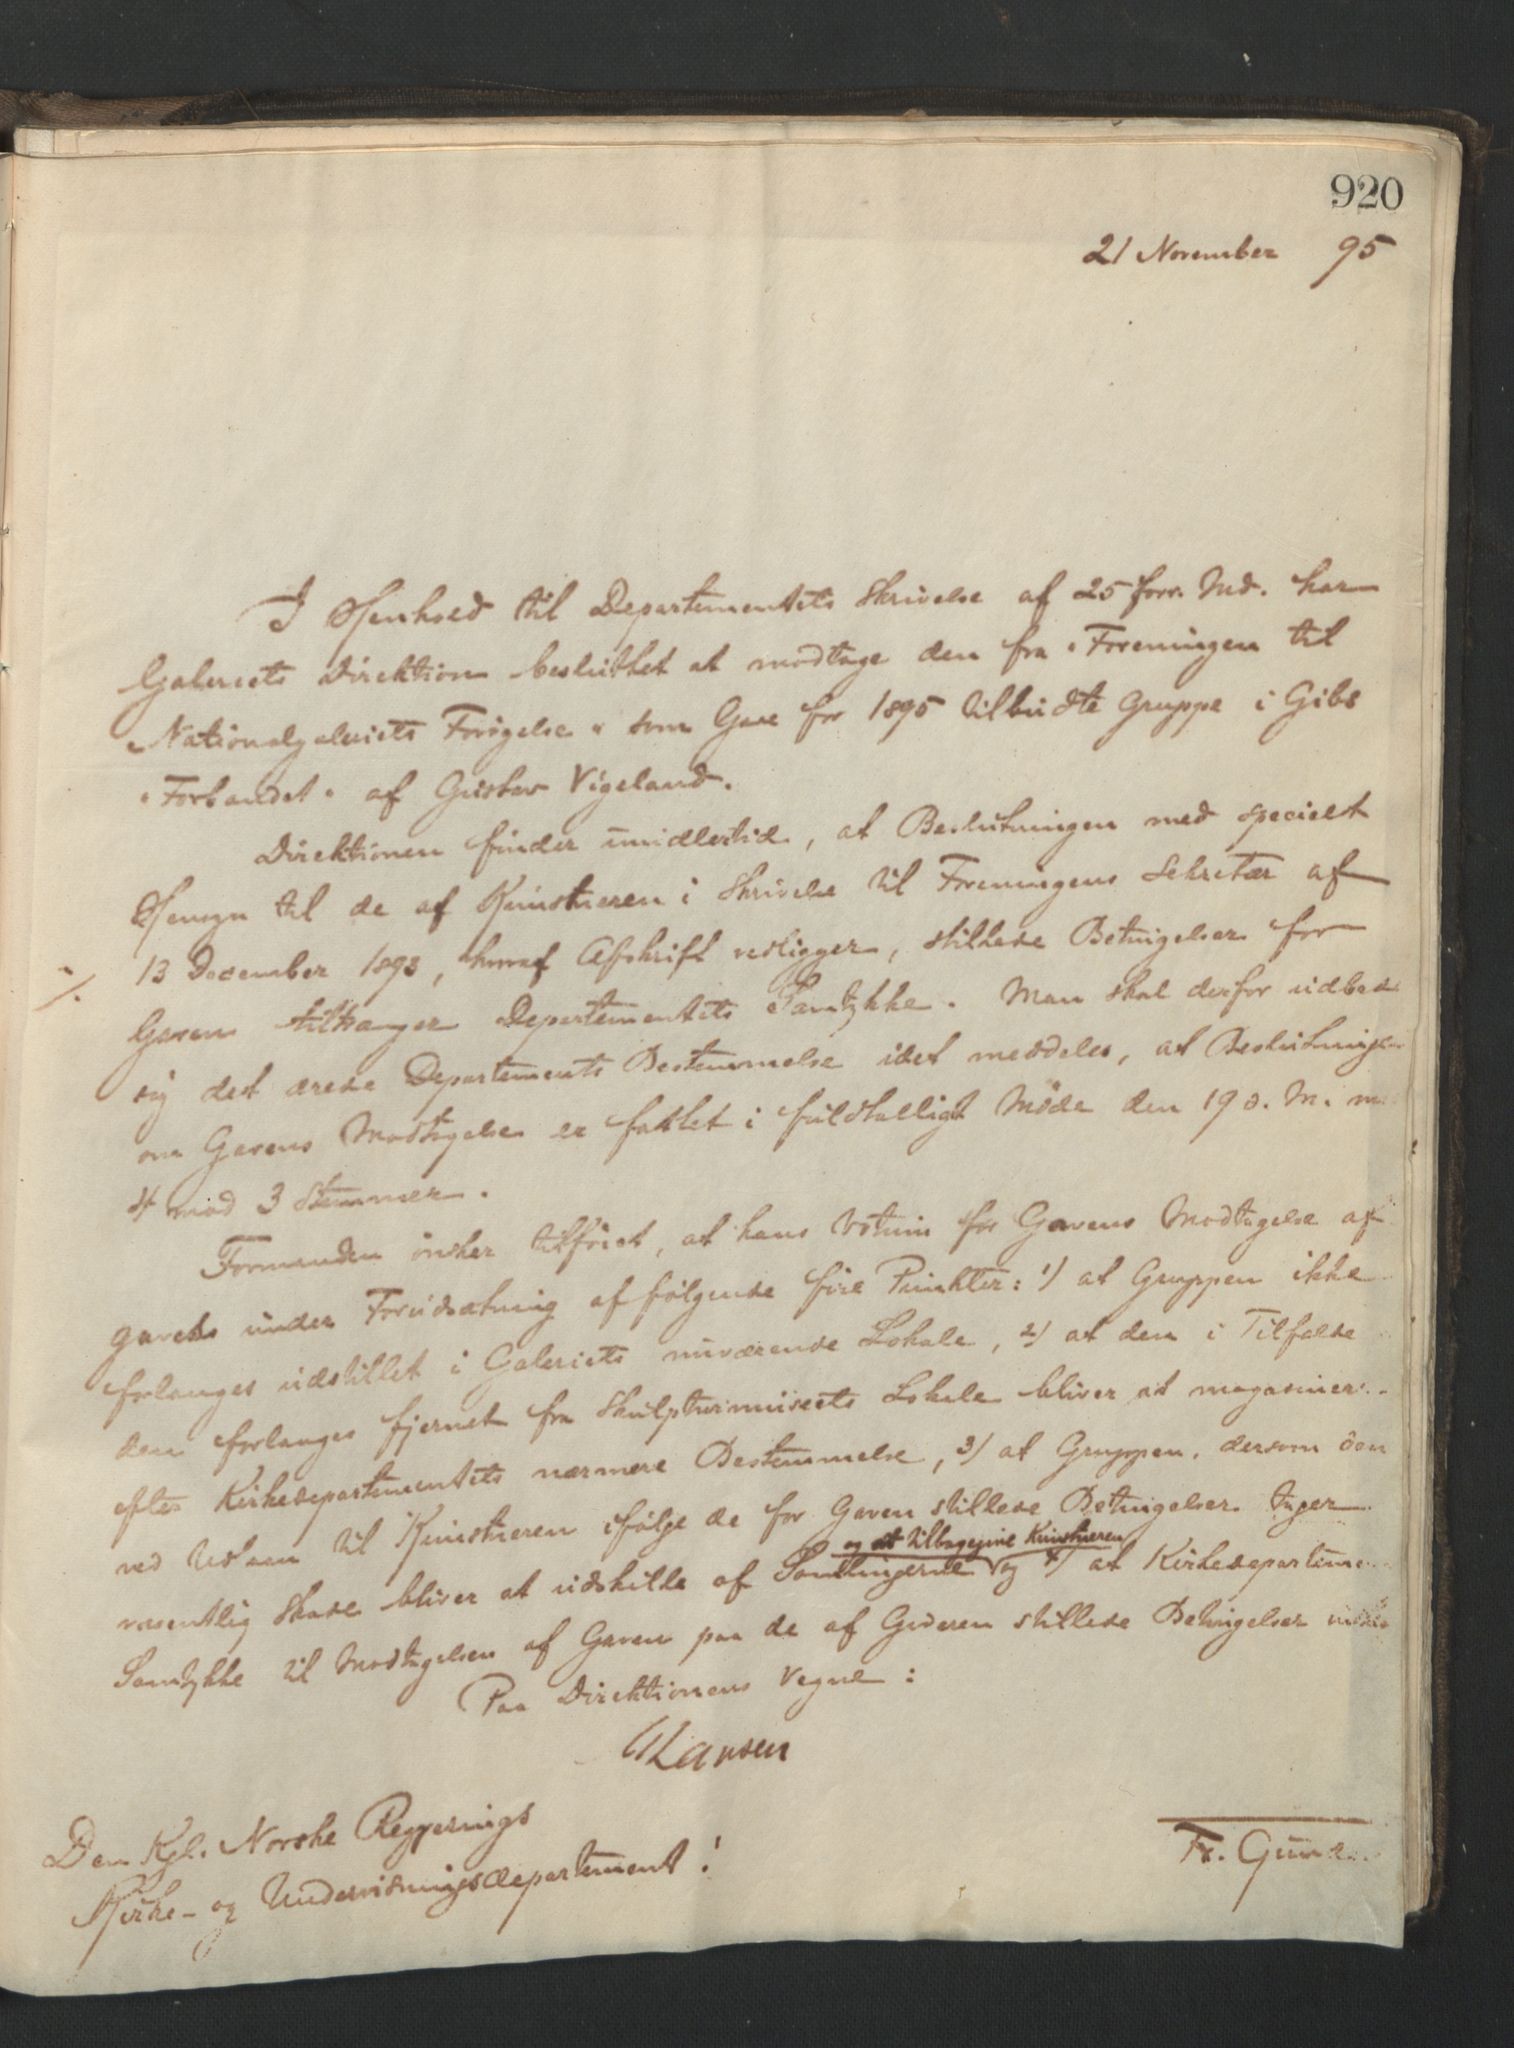 920
21 November 95
I Henhold til Departementets Skrivelse af 25 forr. Md. har
Galeriets Direktion besluttet at modtage den fra "Foreningen til
Nationalgaleriets Forøgelse" som Gave for 1895 tilbudte Gruppe i Gibs
"Forbandet" af Gustav Vigeland.
Direktionen finder imidlertid, at Beslutningen med specielt
Hensyn til de af Kunstneren i Skrivelse til Foreningens Sekretær af
./. 13 December 1893, hvoraf Afskrift vedligger, stillede Betingelser for
Gaven tiltrænger Departementets Samtykke. Man skal derfor udbede
sig det ærede Departements Bestemmelse idet meddeles, at Beslutningen
om Gavens Modtagelse er fattet i fuldtalligt Møde den 19 d. M. m
4 mod 3 Stemmer.
Formanden ønsker tilføiet, at hans Votum for Gavens Modtagelse af-
gaves under Forudsætning af følgende fire Punkter: 1) at Gruppen ikke
forlanges udstillet i Galeriets nuværende Lokale, 2) at den i Tilfælde
den forlanges fjernet fra Skulpturmuseets Lokale bliver at magasinere
efter Kirkedepartementets nærmere Bestemmelse, 3) at Gruppen, dersom den
ved Udlaan til Kunstneren ifølge de for Gaven stillede Betingelser tager
og at tilbagegive Kunstneren
væsentlig Skade bliver at udskille af Samlingerne og 4) at Kirkedepartemen
Samtykke til Modtagelsen af Gaven paa de af Giveren stillede Betingelser
Paa Direktionens Vegne:
Larsen
Den Kgl. Norske Regjerings
Kirke- og Undervisningsdepartement!
Fr. Gund